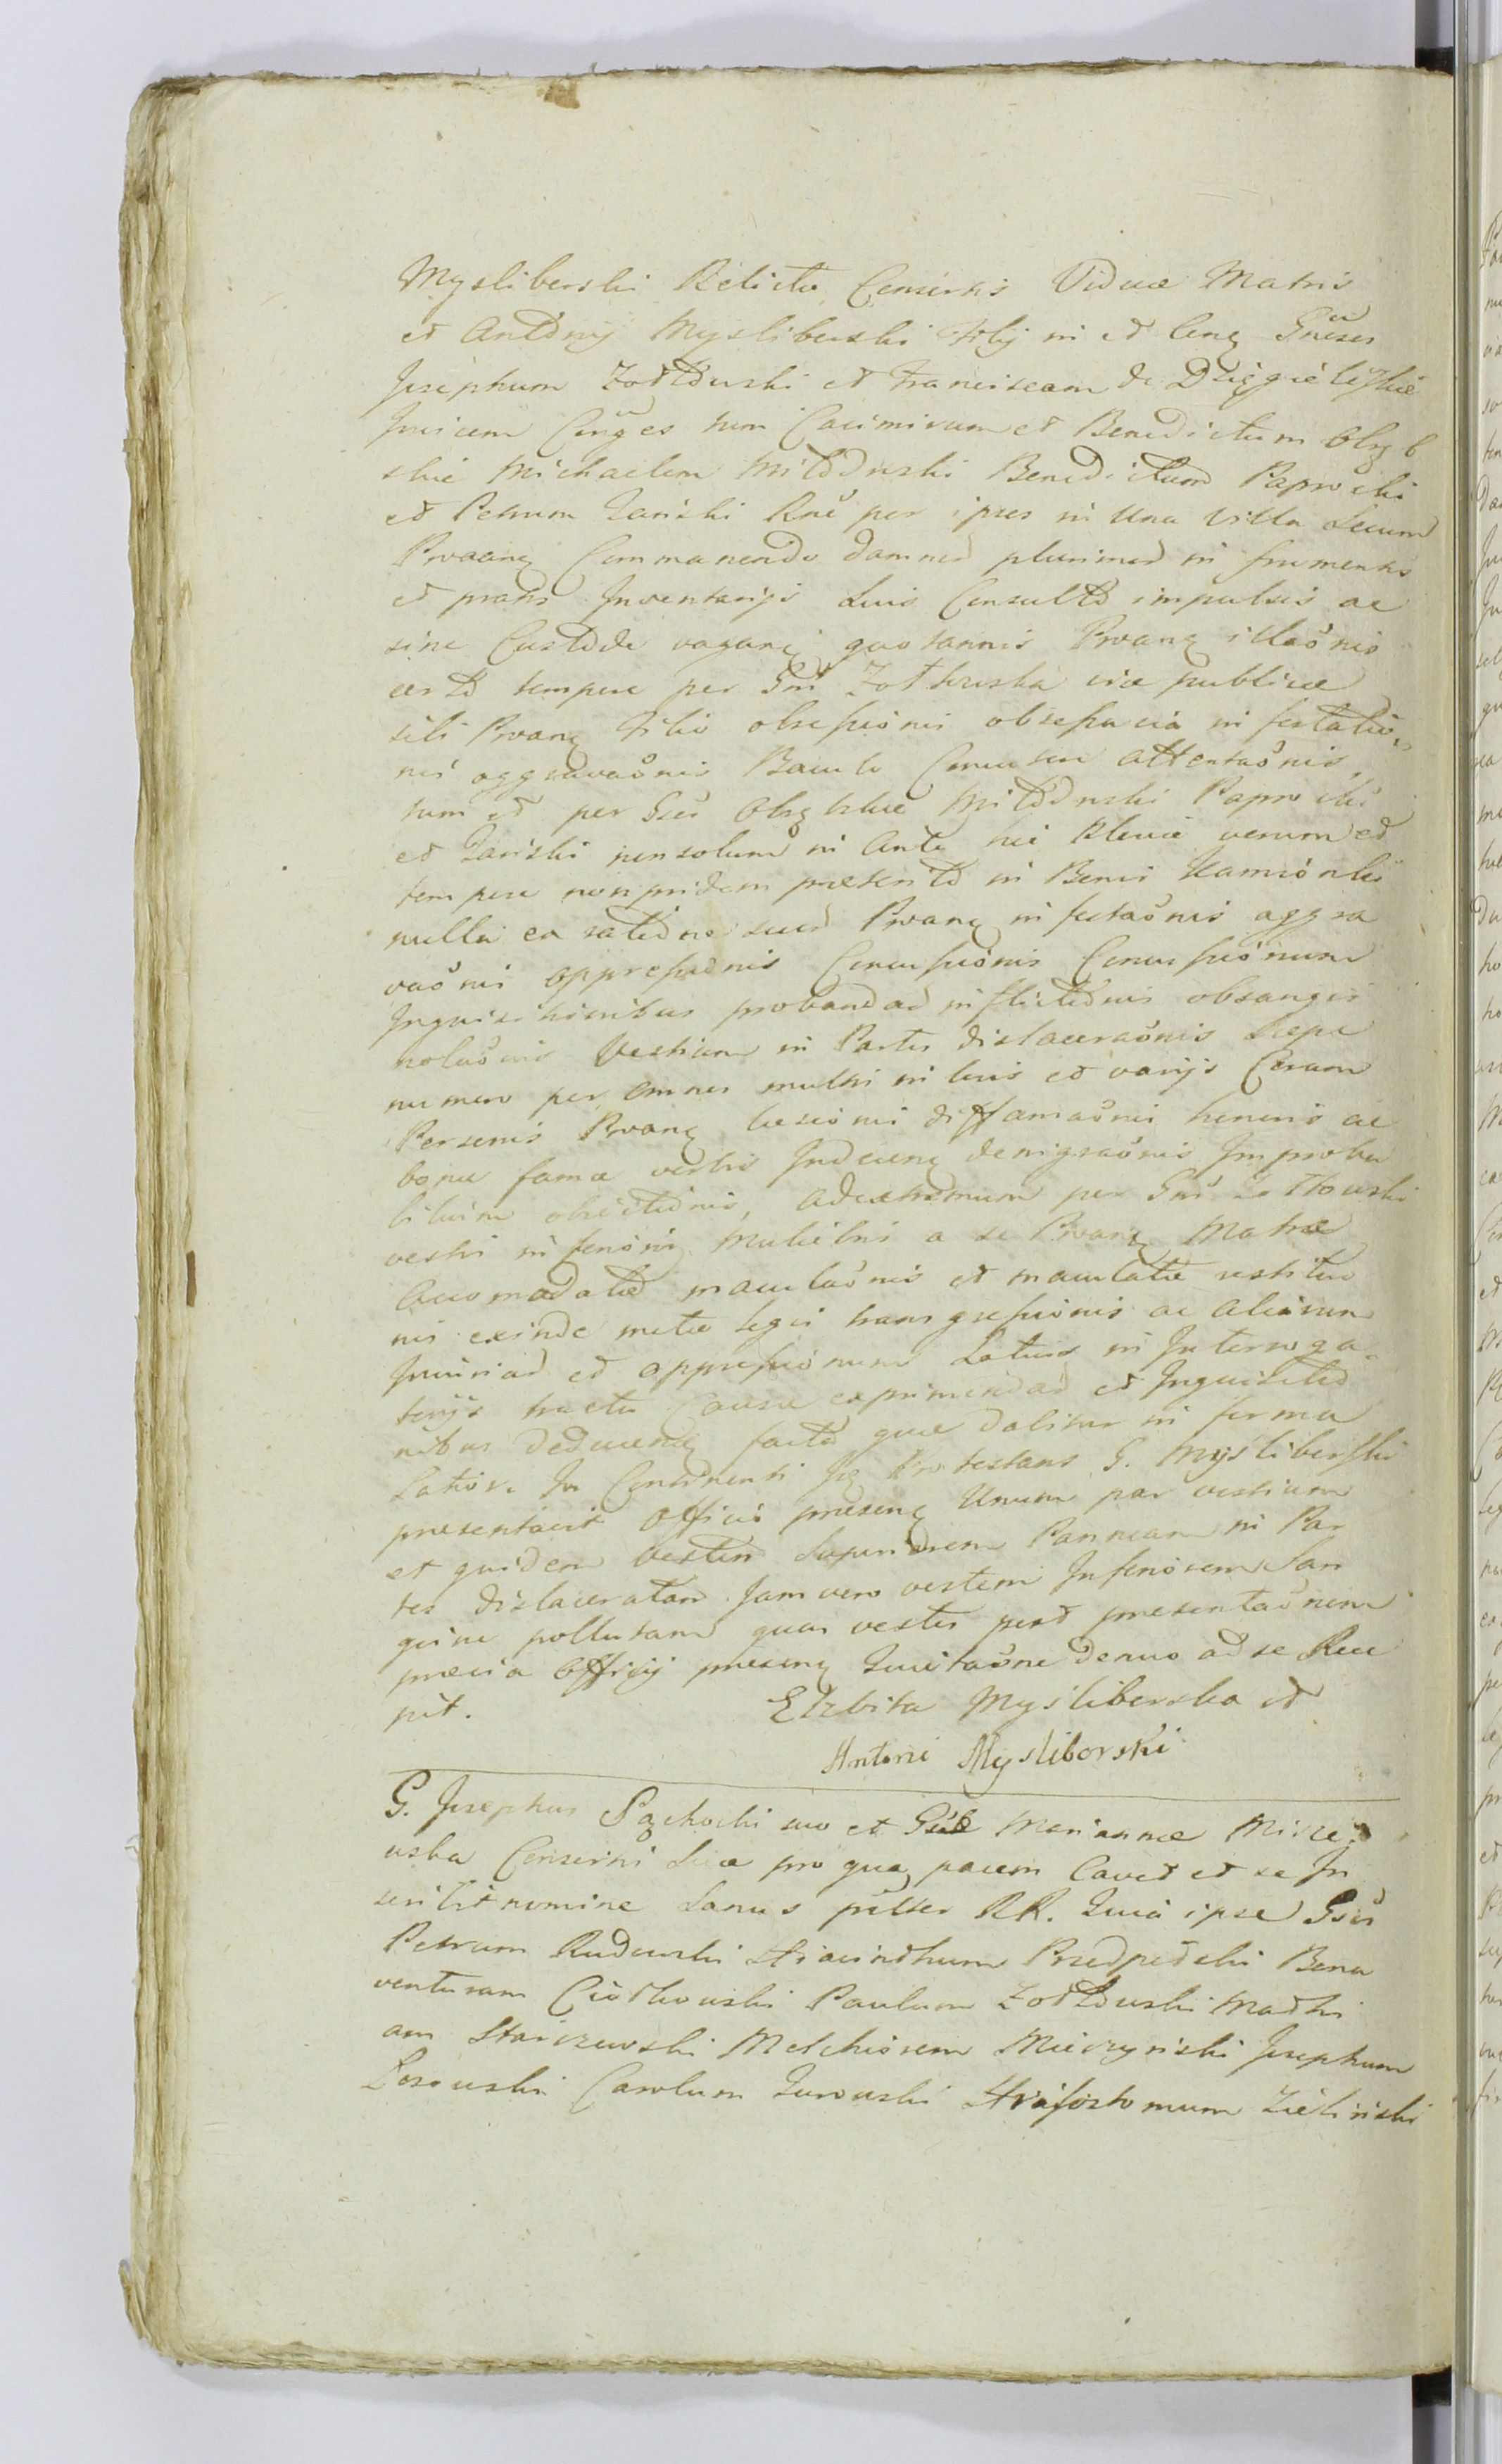 Mysliberski Relictæ Consortis Viduæ Matris
et Antonij Mysliberski Filij in et Cong Gnesos
Josephum Zołtowski et Franciscam de Dzięgieliskie
Invicem Conges tum Casimirum et Benedictum Olęb
skie Michaelem Miłodrski Benedictum Paprocki
et Petrum Zaniski Rne per ipsos in Una Villa Secum
Proang Commanendo damnor plurimor in frumentis
et pratis Inventarijs Suis Consulto impulsis ac
sine Custode vagang quotannis Proang illaonis
certo tempore per Gnu Zołtowski viæ publicæ
sibi Proang Filio obsessionis obsessa via infestatio
nis aggravaonis Baculo Concussu attentaonis,
tum et per Gsos Olębskie Miłodrski Paprocki
et Zaniski non solum in Ante hei Relucie verum et
tempore non pridem præterito in Bonis Kamionki
nulla ea ratione suor Proang infestaonis aggra
vaonis oppressaonis Concussionis Concussionum
Inquisitionibus probandar inflictionis obsangvi
nolaonis Vestium in Partes dislaceraonis Sepe
numero per omnes multis in locis et varijs Coram
Personis Proang læsionis diffamaonis honoris ac
bonæ famæ verbis Indeceng denigraonis Improba
bilium obiectionis, ad extremum per Gnu Zołtowski
vestis inferioris Muliebris a se Proang Matre
Accomodatæ maculaonis et maculatæ restitutio
nis exinde metæ legis transgressionis ac Aliarum
Iniuriar et oppressionum Latius in Interroga
torijs tractu Causæ exprimendar et Inquisitio
nibus deduceng facto quæ dabitur in forma
Latiori In Continenti Ijg Protestans G. Mysliberski
presentavit Officio præseng Unum par vestium
et quidem Vestem Superiorem Panneam in Par
tes dislaceratam Jam vero vestem Inferiorem San
guine pollutam quas vestes post presentaonem
prævia Officij præseng Quietaone denuo ad se Rece
pit.
Elzbita Mysliberska et
Antoni Mysliborski
G. Josephus Sęchocki suo et Gsæ Mariannæ Misze
wska Consortis Suæ pro qua pacem Cavet et se In
scribit nomine Sanus pilter RR. Quia ipse Gsos
Petrum Rudowski Hiacinthum Przedpełski Bona
venturam Ciółkowski Paulum Zołtowski Mathi
am Staiszewski Melchiorem Mieczyński Josephum
Losowski Carolum Zurowski Hrisostomum Zieliński